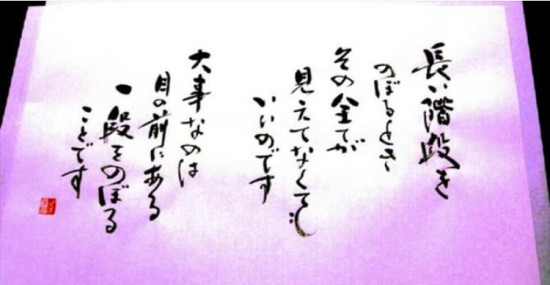 長い階段を
のぼるとき
その全てが
見えてなくても
いいのです
大事なのは
目の前にある
一段をのぼる
ことです